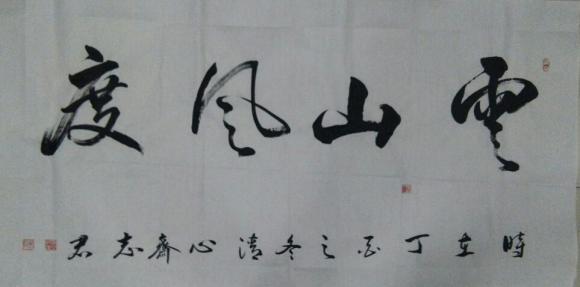 雲山风度
時在丁酉之冬清心齋志君